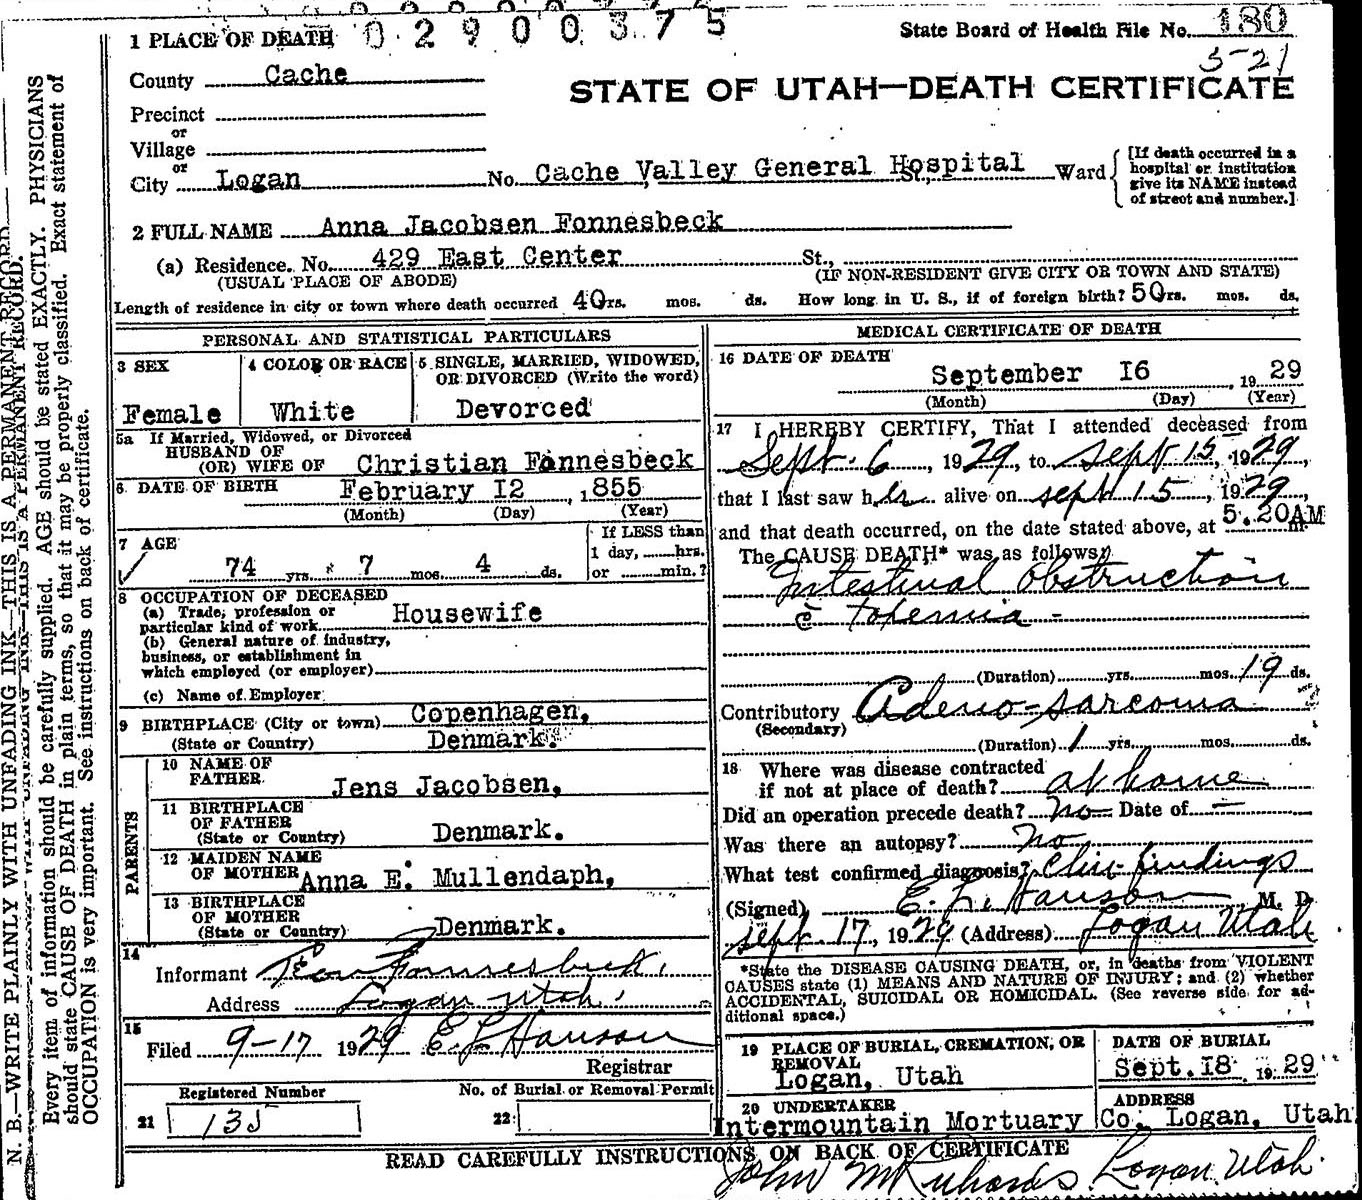 02900375
State Board of Health File No. 180
5-21
1 PLACE OF DEATH
County Cache
STATE OF UTAH—DEATH CERTIFICATE
Precinct
or
Village
or
City Logan No. Cache Valley General Hospital St., Ward
[If death occurred in a hospital or institution give its NAME instead of street and number.]
2 FULL NAME Anna Jacobsen Fonnesbeck
(a) Residence. No. 429 East Center St.,
(USUAL PLACE OF ABODE) (IF NON-RESIDENT GIVE CITY OR TOWN AND STATE)
Length of residence in city or town where death occurred 40 yrs. mos. ds. How long in U. S., if of foreign birth? 50 yrs. mos. ds.
PERSONAL AND STATISTICAL PARTICULARS
3 SEX
Female
4 COLOR OR RACE
White
5 SINGLE, MARRIED, WIDOWED,
OR DIVORCED (Write the word)
Devorced
5a If Married, Widowed, or Divorced
HUSBAND OF
(OR) WIFE OF Christian Fonnesbeck
6 DATE OF BIRTH February I2 , 1855
(Month) (Day) (Year)
7 AGE
74 yrs. 7 mos. 4 ds.
If LESS than
1 day, hrs.
or min.?
8 OCCUPATION OF DECEASED
(a) Trade, profession or
particular kind of work Housewife
(b) General nature of industry,
business, or establishment in
which employed (or employer)
(c) Name of Employer
9 BIRTHPLACE (City or town) Copenhagen,
(State or Country) Denmark.
PARENTS
10 NAME OF
FATHER Jens Jacobsen,
11 BIRTHPLACE
OF FATHER
(State or Country) Denmark.
12 MAIDEN NAME
OF MOTHER Anna E. Mullendaph,
13 BIRTHPLACE
OF MOTHER
(State or Country) Denmark.
14
Informant Leon Fonnesbeck,
Address Logan Utah.
15
Filed 9-17 1929 E L Hanson
Registrar
Registered Number
21 135
No. of Burial or Removal Permit
22
MEDICAL CERTIFICATE OF DEATH
16 DATE OF DEATH
September I6 , 19 29
(Month) (Day) (Year)
17 I HEREBY CERTIFY, That I attended deceased from
Sept. 6 , 1929, to Sept 15, 1929,
that I last saw her alive on Sept 15 , 1929,
and that death occurred, on the date stated above, at 5.20AM
The CAUSE DEATH* was as follows:
Intestinal Obstruction
c̄ toxemia -
(Duration) yrs. mos. 19 ds.
Contributory Adeno-sarcoma
(Secondary)
(Duration) 1 yrs. mos. ds.
18 Where was disease contracted
if not at place of death? at home
Did an operation precede death? no Date of —
Was there an autopsy? no
What test confirmed diagnosis? Clin findings
(Signed) E. L. Hanson M. D.
Sept. 17, 1929 (Address) Logan Utah
*State the DISEASE CAUSING DEATH, or, in deaths from VIOLENT
CAUSES state (1) MEANS AND NATURE OF INJURY; and (2) whether
ACCIDENTAL, SUICIDAL OR HOMICIDAL. (See reverse side for ad-
ditional space.)
19 PLACE OF BURIAL, CREMATION, OR
REMOVAL
Logan, Utah
DATE OF BURIAL
Sept. I8 19 29
20 UNDERTAKER
Intermountain Mortuary
ADDRESS
Co. Logan, Utah
READ CAREFULLY INSTRUCTIONS ON BACK OF CERTIFICATE
John M Richards. Logan, Utah.
N. B.—WRITE PLAINLY WITH UNFADING INK—THIS IS A PERMANENT RECORD.
Every item of information should be carefully supplied. AGE should be stated EXACTLY. PHYSICIANS
should state CAUSE OF DEATH in plain terms, so that it may be properly classified. Exact statement of
OCCUPATION is very important. See instructions on back of certificate.